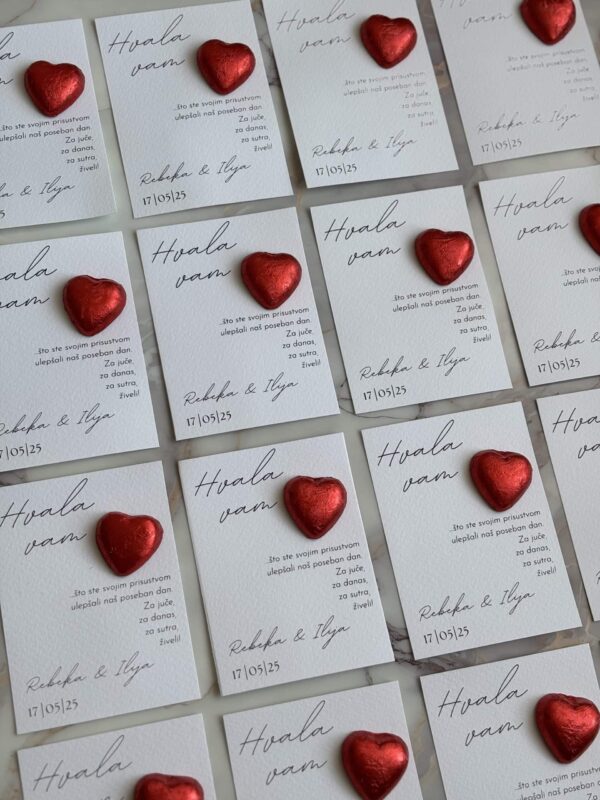 Hvala
vam
...što ste svojim prisustvom
ulepšali naš poseban dan.
Za juče,
za danas,
za sutra,
živeli!
Rebeka & Ilya
17|05|25